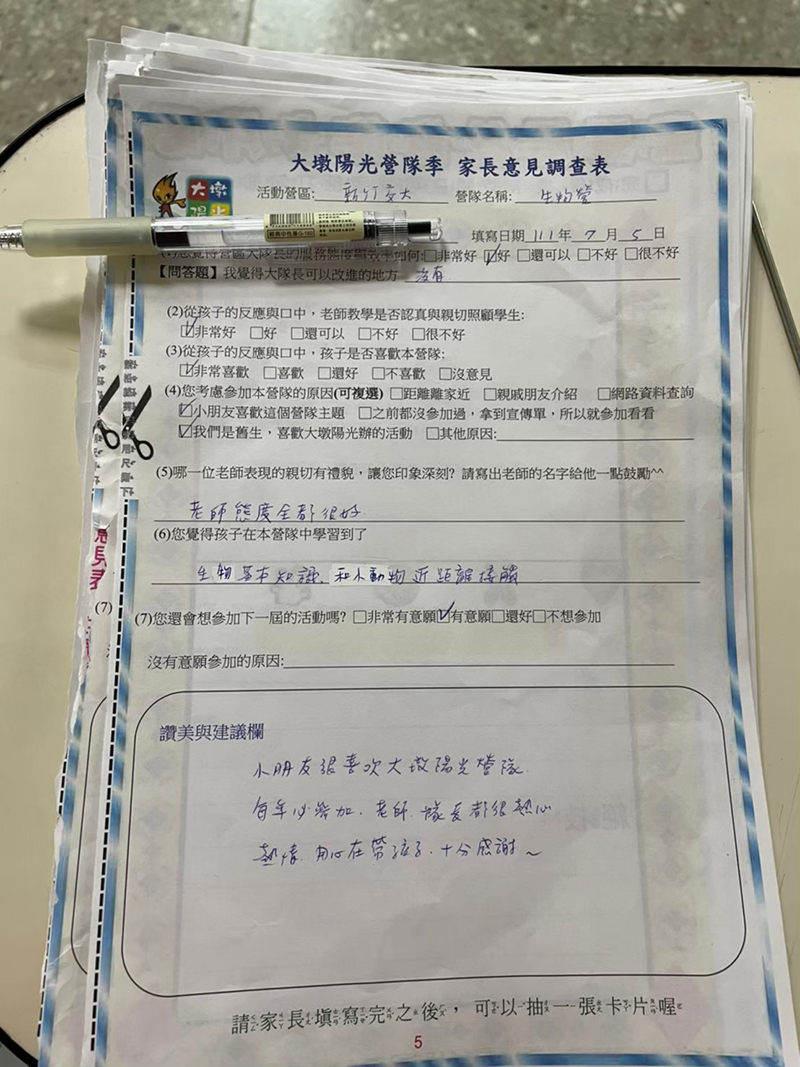 大墩陽光營隊季 家長意見調查表
大墩
陽光
活動營區: 新竹交大 營隊名稱: 生物營
填寫日期 111 年 7 月 5 日
□非常好 ☑好 □還可以 □不好 □很不好
【問答題】我覺得大隊長可以改進的地方 沒有
(2)從孩子的反應與口中，老師教學是否認真與親切照顧學生:
☑非常好 □好 □還可以 □不好 □很不好
(3)從孩子的反應與口中，孩子是否喜歡本營隊:
☑非常喜歡 □喜歡 □還好 □不喜歡 □沒意見
(4)您考慮參加本營隊的原因(可複選) □距離離家近 □親戚朋友介紹 □網路資料查詢
☑小朋友喜歡這個營隊主題 □之前都沒參加過，拿到宣傳單，所以就參加看看
☑我們是舊生，喜歡大墩陽光辦的活動 □其他原因:
(5)哪一位老師表現的親切有禮貌，讓您印象深刻? 請寫出老師的名字給他一點鼓勵^^
老師態度全都很好.
(6)您覺得孩子在本營隊中學習到了
生物基本知識、和小動物近距離接觸
(7)
(7)您還會想參加下一屆的活動嗎? □非常有意願☑有意願□還好□不想參加
沒有意願參加的原因:
讚美與建議欄
小朋友很喜欢大墩陽光營隊.
每年必參加. 老師. 隊長都很熱心
熱情. 用心在帶孩子. 十分感謝～
請家長填寫完之後，可以抽一張卡片喔
5